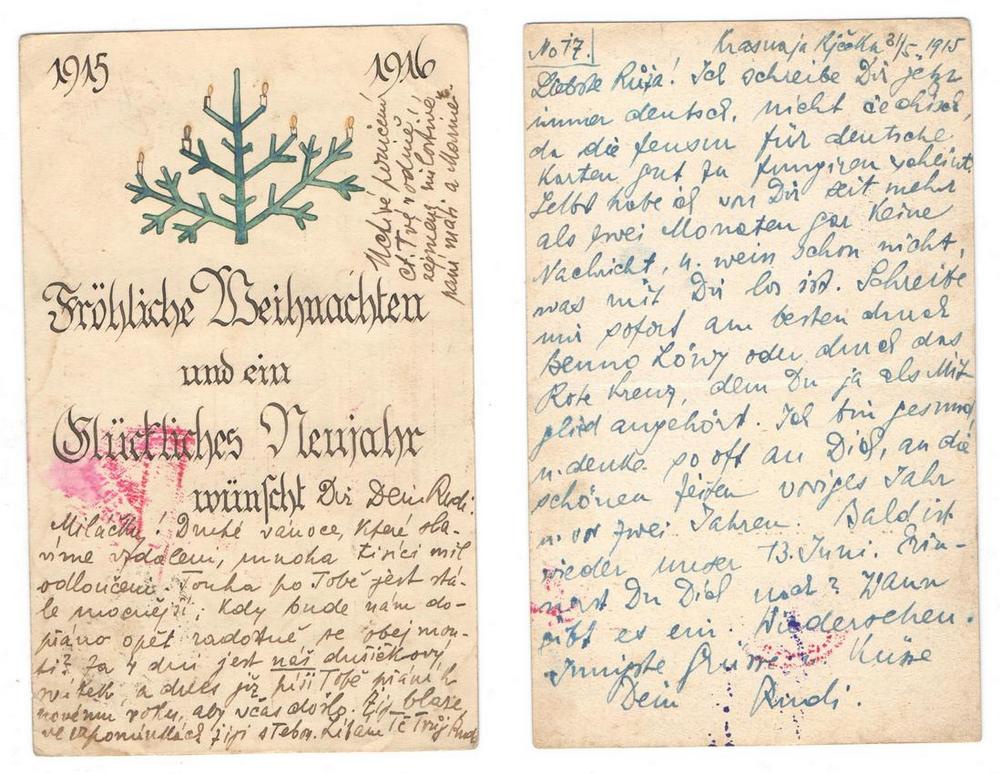 1915 1916
Uctivé poručení
ct. Tvé rodině,
zejmena milostivé
paní mati a Marině.
Fröhliche Weihnachten
und ein
Glückliches Neujahr
wünscht Dir Dein Rudi.
Miláčku! Druhé vánoce, které sla-
víme vzdáleni, mnoha tisíci mil
odloučeni. Touha po Tobě jest stá-
le mocnější; kdy bude nám do-
přáno opět radostně se obejmou-
ti? Za 4 dni jest náš dušičkový
a dnes již píši Tobě přání k
novému roku, aby včas došlo. Žij blaze
ve vzpomínkách žiji s Tebou. Líbám Tě Tvůj Rudi
No 17. Krasnaja Rječka 31/5. 1915
Liebste Ruža! Ich schreibe Dir jetzt
immer deutsch, nicht čechisch,
da die Zensur für deutsche
Karten gut zu fungiren scheint.
Selbst habe ich von Dir seit mehr
als zwei Monaten gar keine
Nachricht, u. weiss schon nicht,
was mit Dir los ist. Schreibe
mir sofort am besten durch
Benno Löwy oder durch das
Rote Kreuz, dem Du ja als Mit-
glied angehörst. Ich bin gesund,
u. denke so oft an Dich, an die
schönen Zeiten voriges Jahr
u. vor zwei Jahren. Bald ist
wieder unser 13. Juni. Erin-
nerst Du Dich noch? Wann
gibt es ein Wiedersehen.
Innigste Grüsse u. Küsse
Dein Rudi.